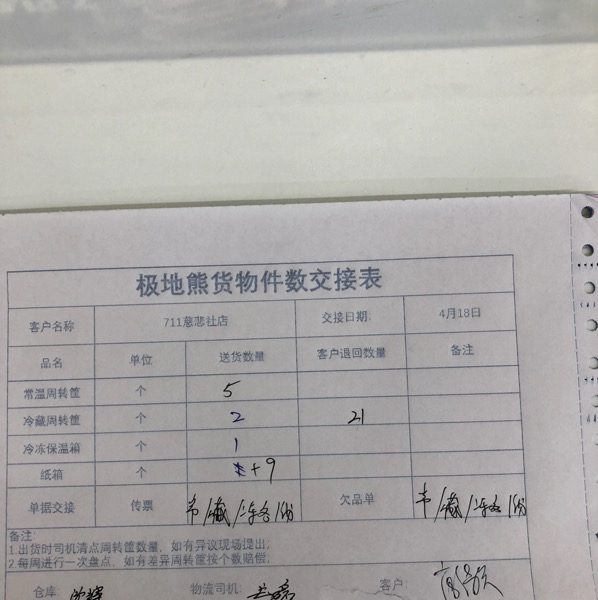 极地熊货物件数交接表
客户名称 711慈悲社店 交接日期: 4月18日
品名 单位 送货数量 客户退回数量 备注
常温周转筐 个 5
冷藏周转筐 个 2 21
冷冻保温箱 个 1
纸箱 个 +9
单据交接 传票 常/藏/冻各1份 欠品单 常/藏/冻各1份
备注:
1.出货时司机清点周转筐数量，如有异议现场提出;
2.每周进行一次盘点，如有差异周转筐按个数赔偿;
仓库: 物流司机: 客户: